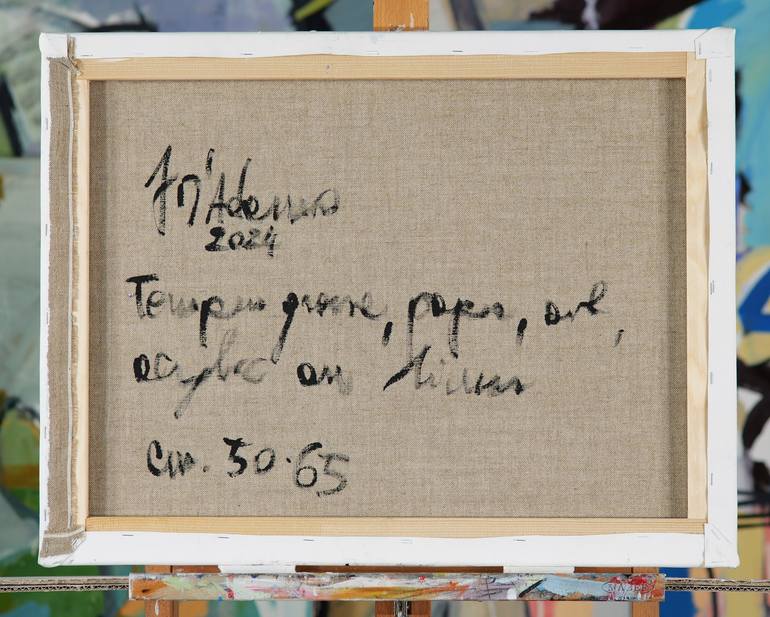 D'Adamo
2024
Tempera grassa, paper, oil,
acrylic on linen
cm. 50.65